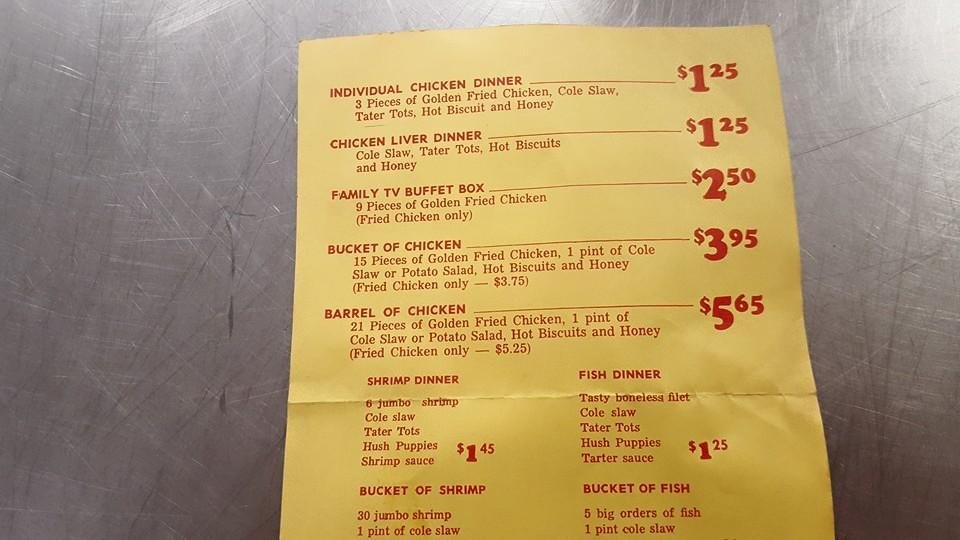 INDIVIDUAL CHICKEN DINNER $1.25
3 Pieces of Golden Fried Chicken, Cole Slaw,
Tater Tots, Hot Biscuit and Honey
CHICKEN LIVER DINNER $1.25
Cole Slaw, Tater Tots, Hot Biscuits
and Honey
FAMILY TV BUFFET BOX $2.50
9 Pieces of Golden Fried Chicken
(Fried Chicken only)
BUCKET OF CHICKEN $3.95
15 Pieces of Golden Fried Chicken, 1 pint of Cole
Slaw or Potato Salad, Hot Biscuits and Honey
(Fried Chicken only — $3.75)
BARREL OF CHICKEN $5.65
21 Pieces of Golden Fried Chicken, 1 pint of
Cole Slaw or Potato Salad, Hot Biscuits and Honey
(Fried Chicken only — $5.25)
SHRIMP DINNER
6 jumbo shrimp
Cole slaw
Tater Tots
Hush Puppies $1.45
Shrimp sauce
FISH DINNER
Tasty boneless filet
Cole slaw
Tater Tots
Hush Puppies $1.25
Tarter sauce
BUCKET OF SHRIMP
30 jumbo shrimp
1 pint of cole slaw
BUCKET OF FISH
5 big orders of fish
1 pint cole slaw